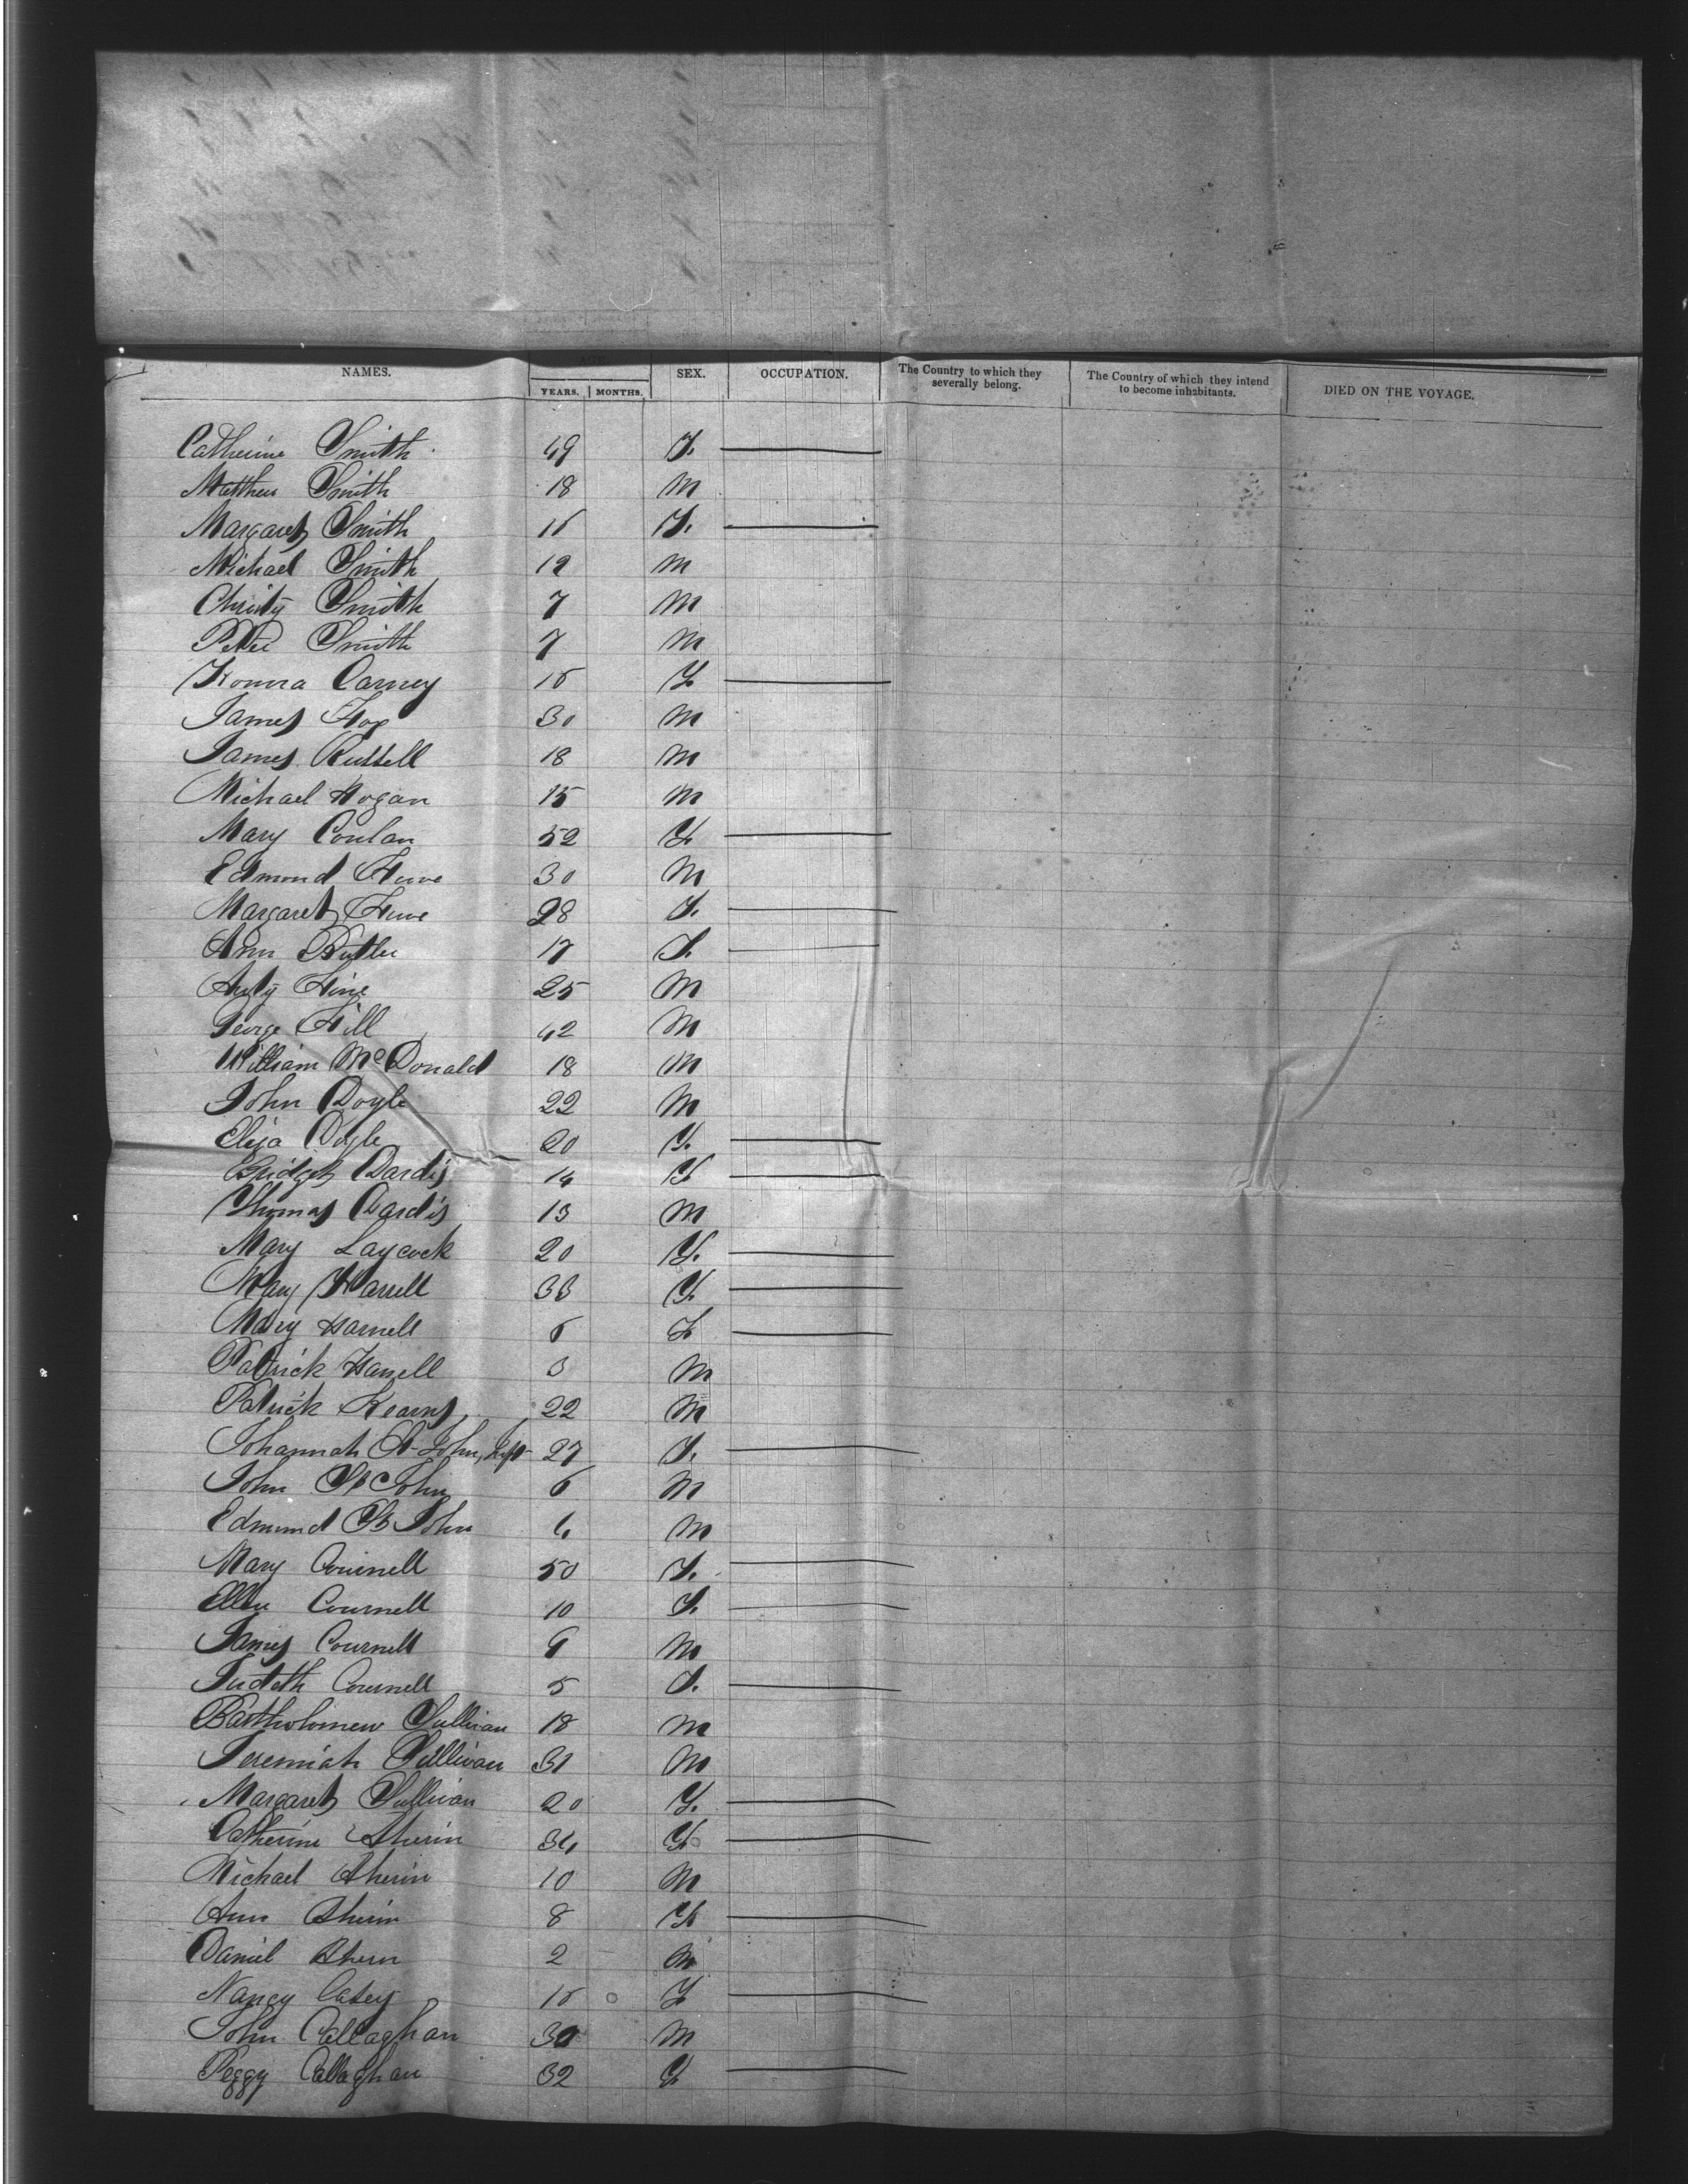 AGE.
NAMES. YEARS. MONTHS. SEX. OCCUPATION. The Country to which they severally belong. The Country of which they intend to become inhabitants. DIED ON THE VOYAGE.
Catherine Smith 49 F.
Matthew Smith 18 M
Margaret Smith 16 F.
Michael Smith 12 M
Christy Smith 7 M
Peter Smith 7 M
Honora Carney 16 F
James Fox 30 M
James Russell 18 M
Michael Hogan 15 M
Mary Conlan 52 F
Edmond 30 M
Margaret 28 F.
Ann Butler 17 F.
25 M
George Hill 42 M
William McDonald 18 M
John Doyle 22 M
Eliza Doyle 20 F.
Bridget Dardis 14 F
Thomas Dardis 13 M
Mary Laycock 20 F.
Mary Harrell 33 F.
Mary 6 F
Patrick 3 M
Patrick Kearns 22 M
Johannah St John, 27 F.
John St John 6 M
Edmund St John 4 M
Mary Cournell 50 F.
Ellen Cournell 10 F.
James Cournell 9 M
Judith Cournell 5 F.
Bartholomew Sullivan 18 M
Jeremiah Sullivan 31 M
Margaret Sullivan 20 F.
Catherine Aherin 34 F
Michael Aherin 10 M
Ann Aherin 8 F
Daniel Ahern 2 M
Nancy Casey 16 F
John Callaghan 30 M
Peggy Callaghan 32 F